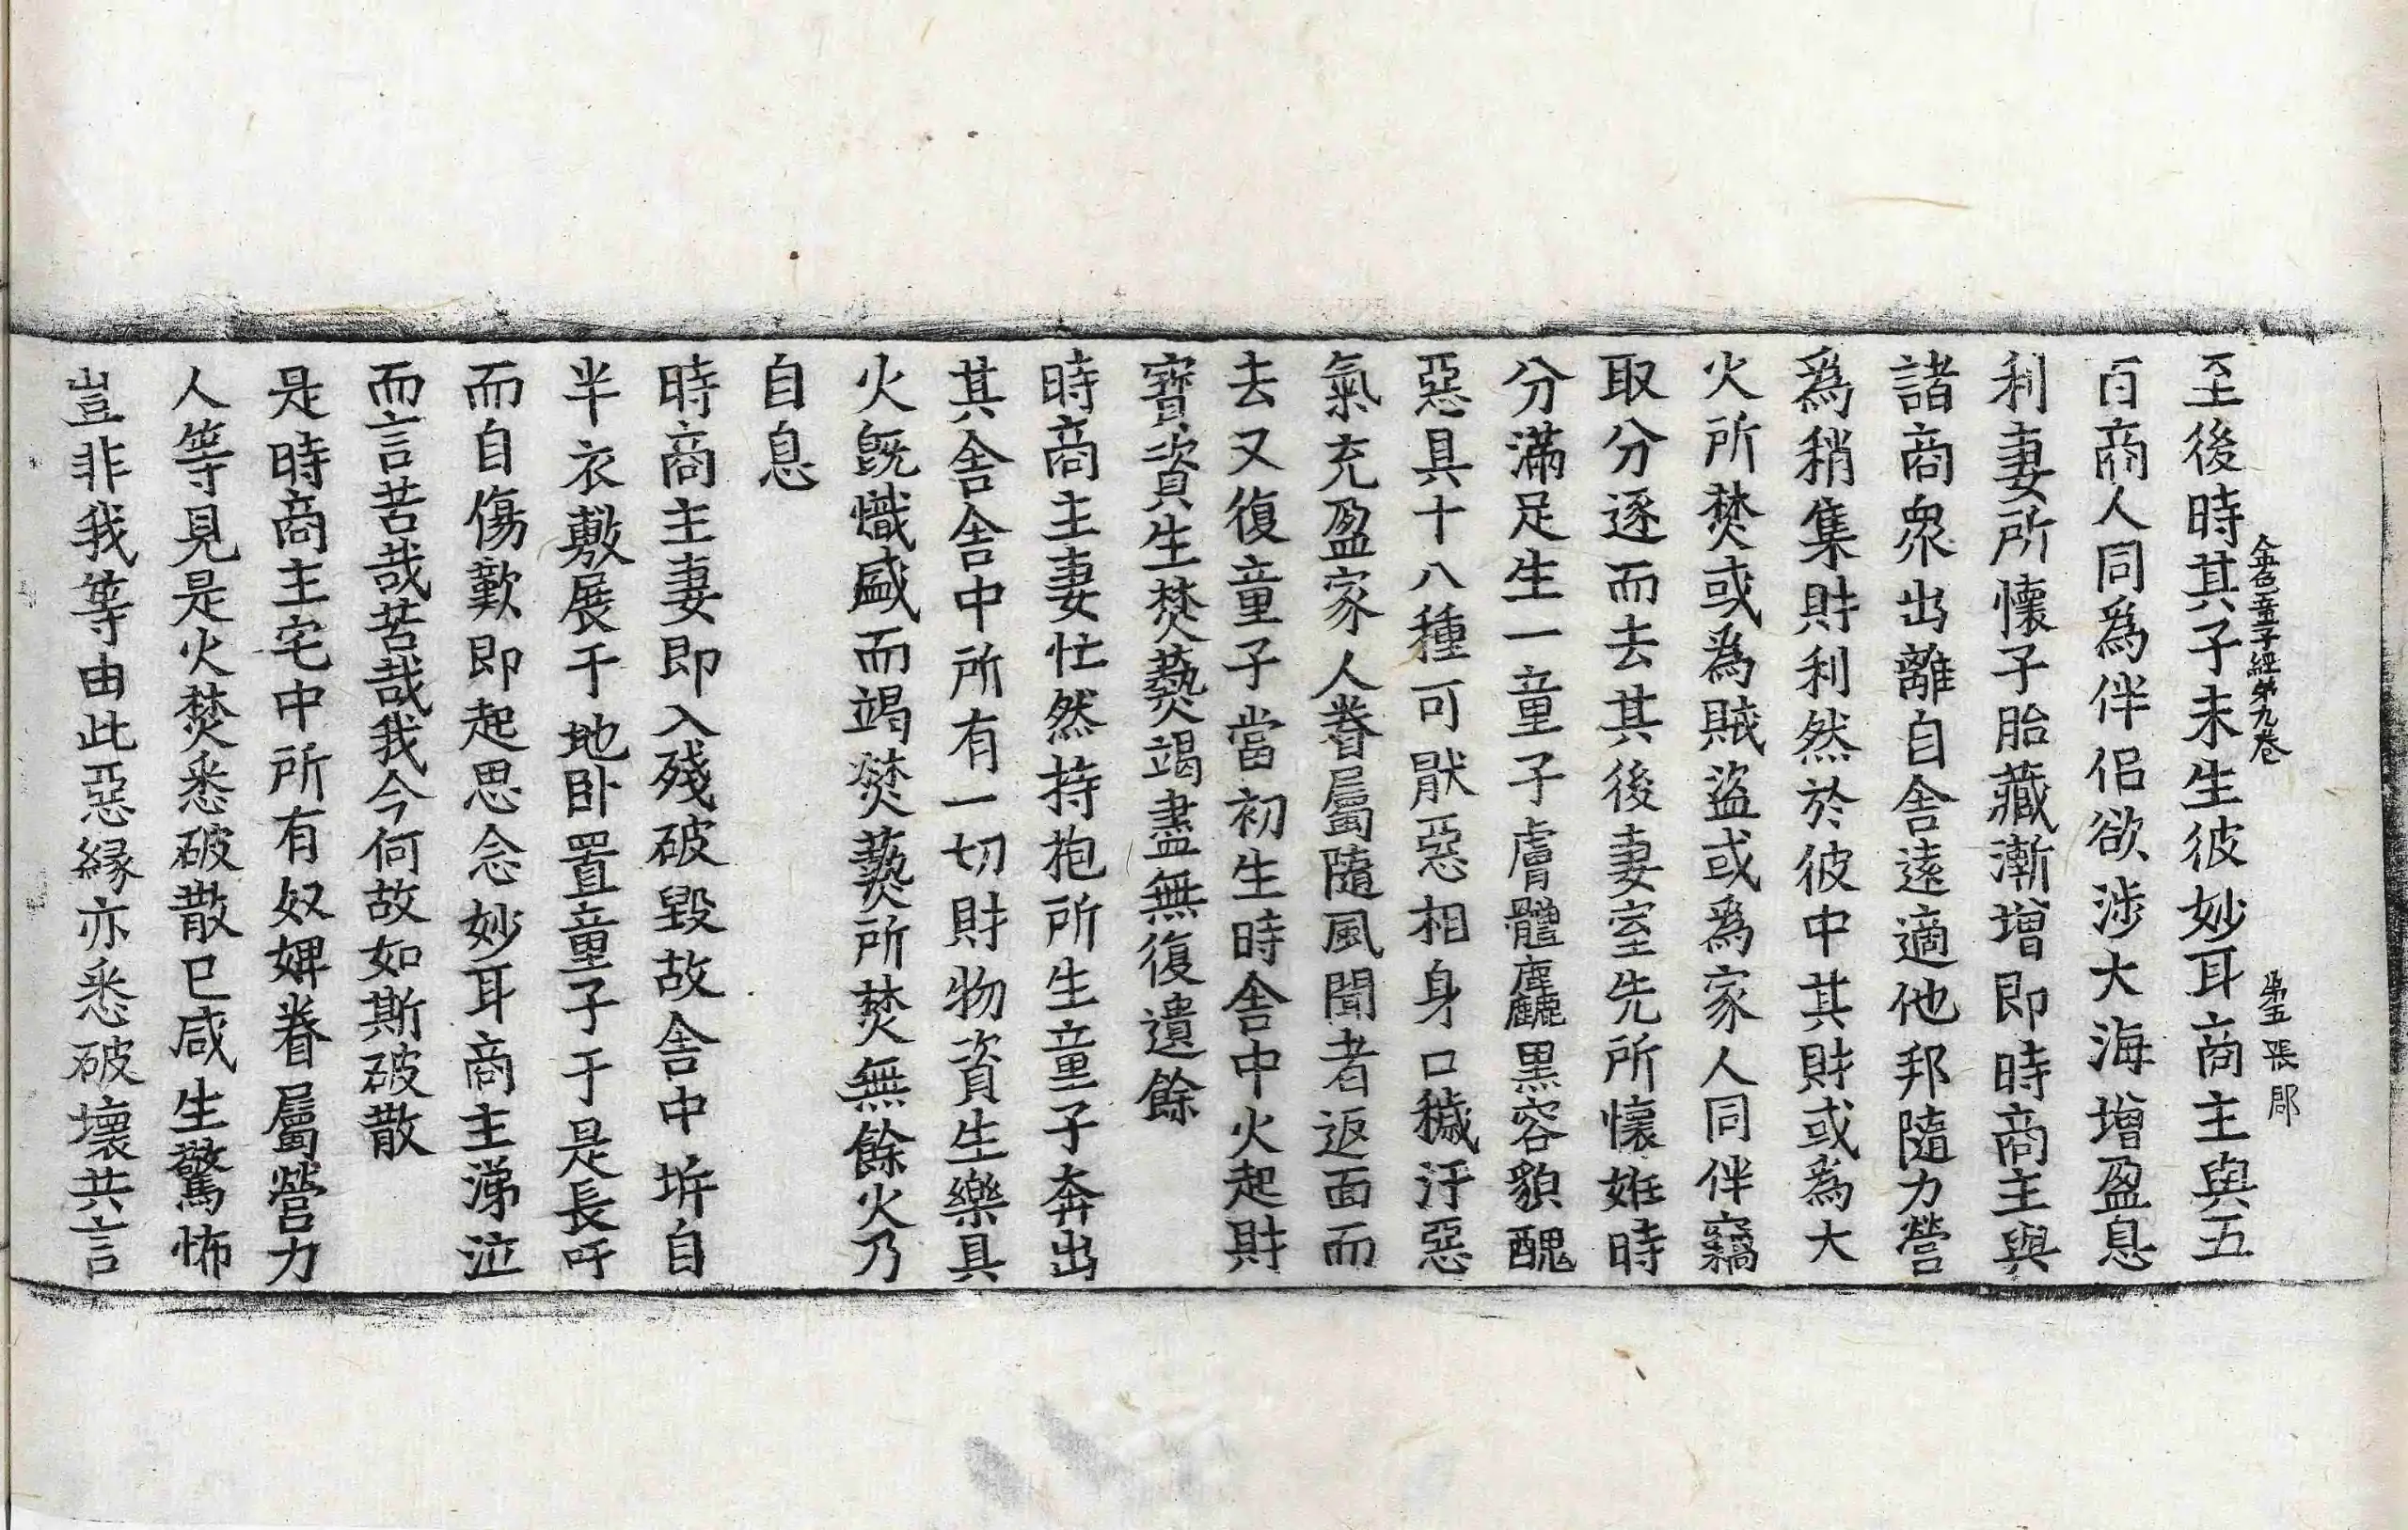 金色童子經第九卷 第五張 郡
至後時其子未生彼妙耳商主與五
百商人同爲伴侶欲涉大海增盈息
利妻所懷子胎藏漸增即時商主與
諸商衆出離自舍遠適他邦隨力營
爲稍集財利然於彼中其財或爲大
火所焚或爲賊盜或爲家人同伴竊
取分逐而去其後妻室先所懷姙時
分滿足生一童子膚體麤黑容貌醜
惡具十八種可猒惡相身口穢汙惡
氣充盈家人眷屬隨風聞者返面而
去又復童子當初生時舍中火起財
寶資生焚爇竭盡無復遺餘
時商主妻忙然持抱所生童子奔出
其舍舍中所有一切財物資生樂具
火旣熾盛而竭焚爇所焚無餘火乃
自息
時商主妻即入殘破毀故舍中坼自
半衣敷展于地卧置童子于是長吁
而自傷歎即起思念妙耳商主涕泣
而言苦哉苦哉我今何故如斯破散
是時商主宅中所有奴婢眷屬營力
人等見是火焚悉破散已咸生驚怖
豈非我等由此惡緣亦悉破壞共言